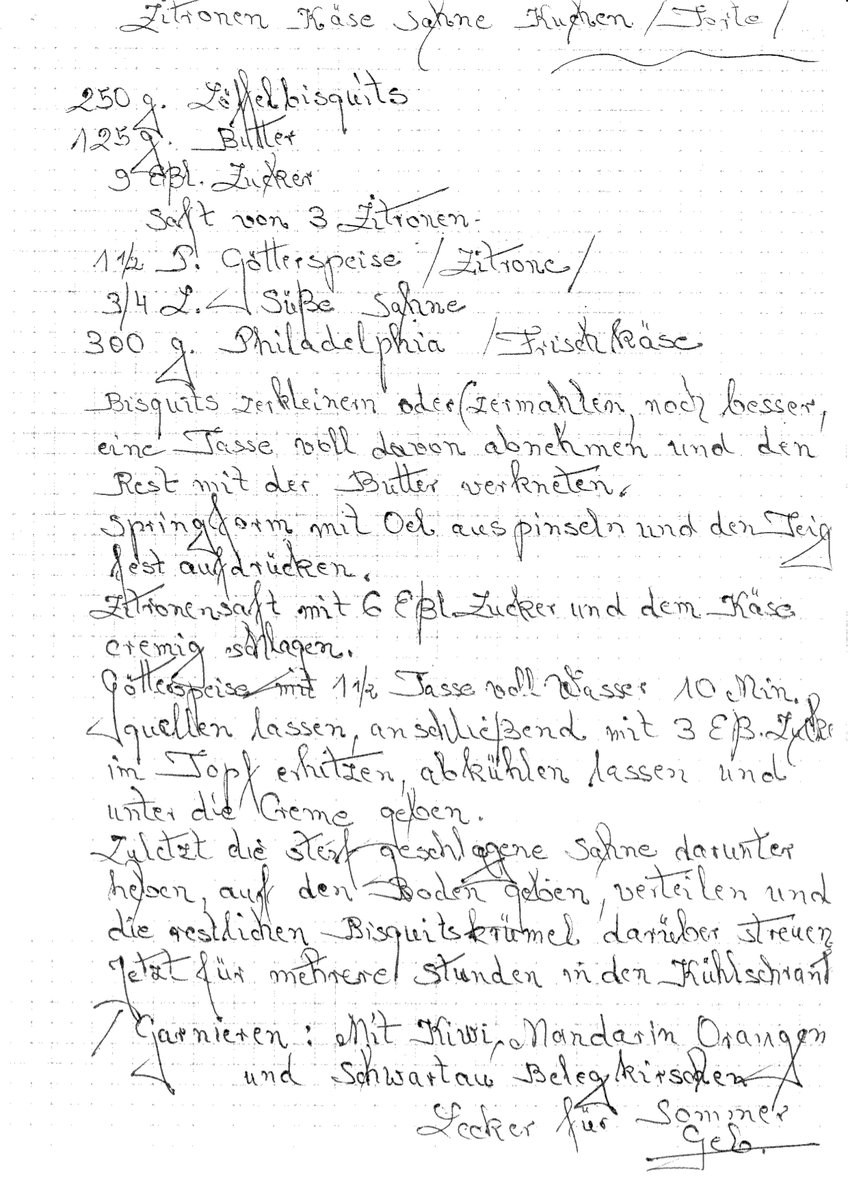 Zitronen Käse Sahne Kuchen /Torte/
250 g. Löffelbisquits
125 g. Butter
9 Eßl. Zucker
Saft von 3 Zitronen.
1 1/2 P. Götterspeise /Zitrone/
3/4 L. Süße Sahne
300 g. Philadelphia /Frischkäse
Bisquits zerkleinern oder (zermahlen, noch besser,
eine Tasse voll davon abnehmen und den
Rest mit der Butter verkneten.
Springform mit Oel auspinseln und den Teig
fest aufdrücken.
Zitronensaft mit 6 Eßl. Zucker und dem Käse
cremig schlagen.
Götterspeise mit 1 1/2 Tasse voll Wasser 10 Min.
quellen lassen, anschließend mit 3 Eß. Zucke
im Topf erhitzen, abkühlen lassen und
unter die Creme geben.
Zuletzt die steif geschlagene Sahne darunter
heben, auf den Boden geben, verteilen und
die restlichen Bisquitskrümel darüber streuen
Jetzt für mehrere Stunden in den Kühlschrank
/Garnieren: Mit Kiwi, Mandarin Orangen
und Schwartau Belegkirschen
Lecker für Sommer
Geb.